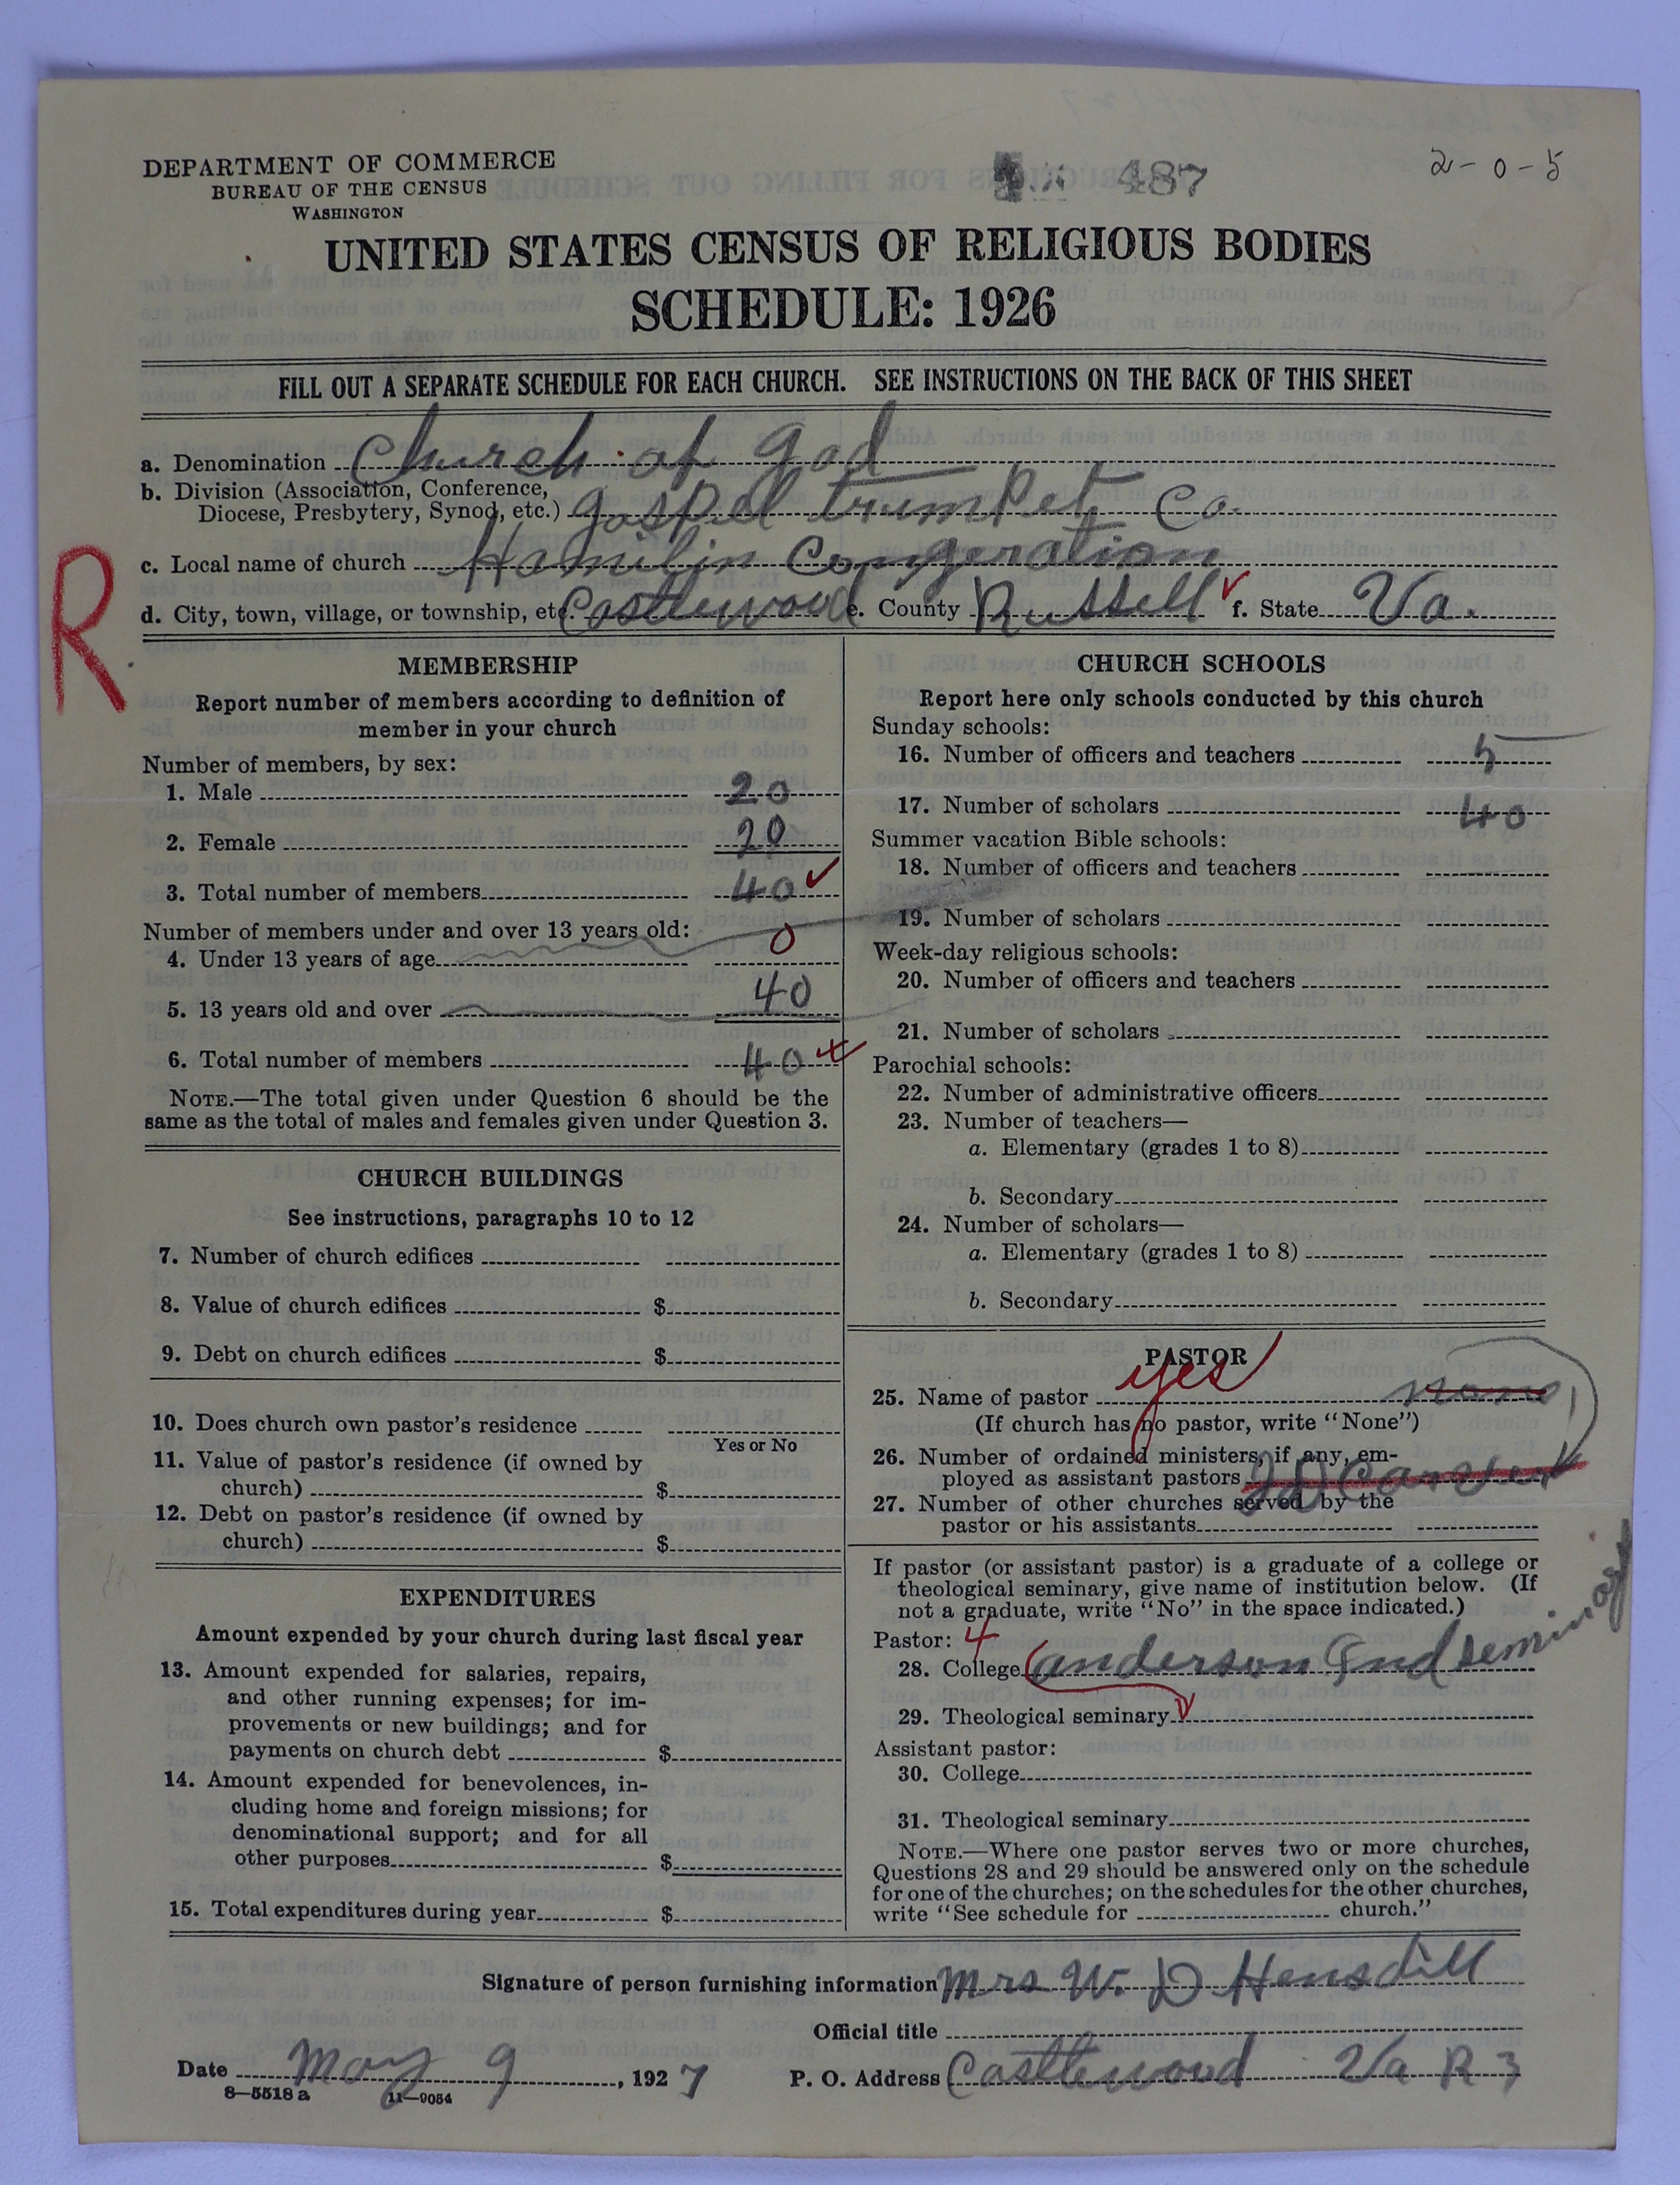 DEPARTMENT OF COMMERCE
BUREAU OF THE CENSUS
WASHINGTON
487
2-0-5
UNITED STATES CENSUS OF RELIGIOUS BODIES
SCHEDULE: 1926
FILL OUT A SEPARATE SCHEDULE FOR EACH CHURCH. SEE INSTRUCTIONS ON THE BACK OF THIS SHEET
a. Denomination Church of god
b. Division (Association, Conference, Diocese, Presbytery, Synod, etc.) gospel trumpet Co.
c. Local name of church Hamilin Congeration
d. City, town, village, or township, etc. Castlewood e. County Russell f. State Va.
R
MEMBERSHIP
Report number of members according to definition of
member in your church
Number of members, by sex:
1. Male 20
2. Female 20
3. Total number of members 40
Number of members under and over 13 years old:
4. Under 13 years of age 0
5. 13 years old and over 40
6. Total number of members 40
NOTE.—The total given under Question 6 should be the
same as the total of males and females given under Question 3.
CHURCH BUILDINGS
See instructions, paragraphs 10 to 12
7. Number of church edifices
8. Value of church edifices $
9. Debt on church edifices $
10. Does church own pastor's residence
Yes or No
11. Value of pastor's residence (if owned by
church) $
12. Debt on pastor's residence (if owned by
church) $
EXPENDITURES
Amount expended by your church during last fiscal year
13. Amount expended for salaries, repairs,
and other running expenses; for im-
provements or new buildings; and for
payments on church debt $
14. Amount expended for benevolences, in-
cluding home and foreign missions; for
denominational support; and for all
other purposes $
15. Total expenditures during year $
CHURCH SCHOOLS
Report here only schools conducted by this church
Sunday schools:
16. Number of officers and teachers 5
17. Number of scholars 40
Summer vacation Bible schools:
18. Number of officers and teachers
19. Number of scholars
Week-day religious schools:
20. Number of officers and teachers
21. Number of scholars
Parochial schools:
22. Number of administrative officers
23. Number of teachers—
a. Elementary (grades 1 to 8)
b. Secondary
24. Number of scholars—
a. Elementary (grades 1 to 8)
b. Secondary
PASTOR
25. Name of pastor yes none
(If church has no pastor, write "None")
26. Number of ordained ministers, if any, em-
ployed as assistant pastors
27. Number of other churches served by the
pastor or his assistants
If pastor (or assistant pastor) is a graduate of a college or
theological seminary, give name of institution below. (If
not a graduate, write "No" in the space indicated.)
Pastor: 4
28. College anderson Ind seminary
29. Theological seminary
Assistant pastor:
30. College
31. Theological seminary
NOTE.—Where one pastor serves two or more churches,
Questions 28 and 29 should be answered only on the schedule
for one of the churches; on the schedules for the other churches,
write "See schedule for church."
Signature of person furnishing information Mrs W. D Hensdill
Official title
Date May 9, 1927 P. O. Address Castlewood Va R 3
8—5518 a 11—9054